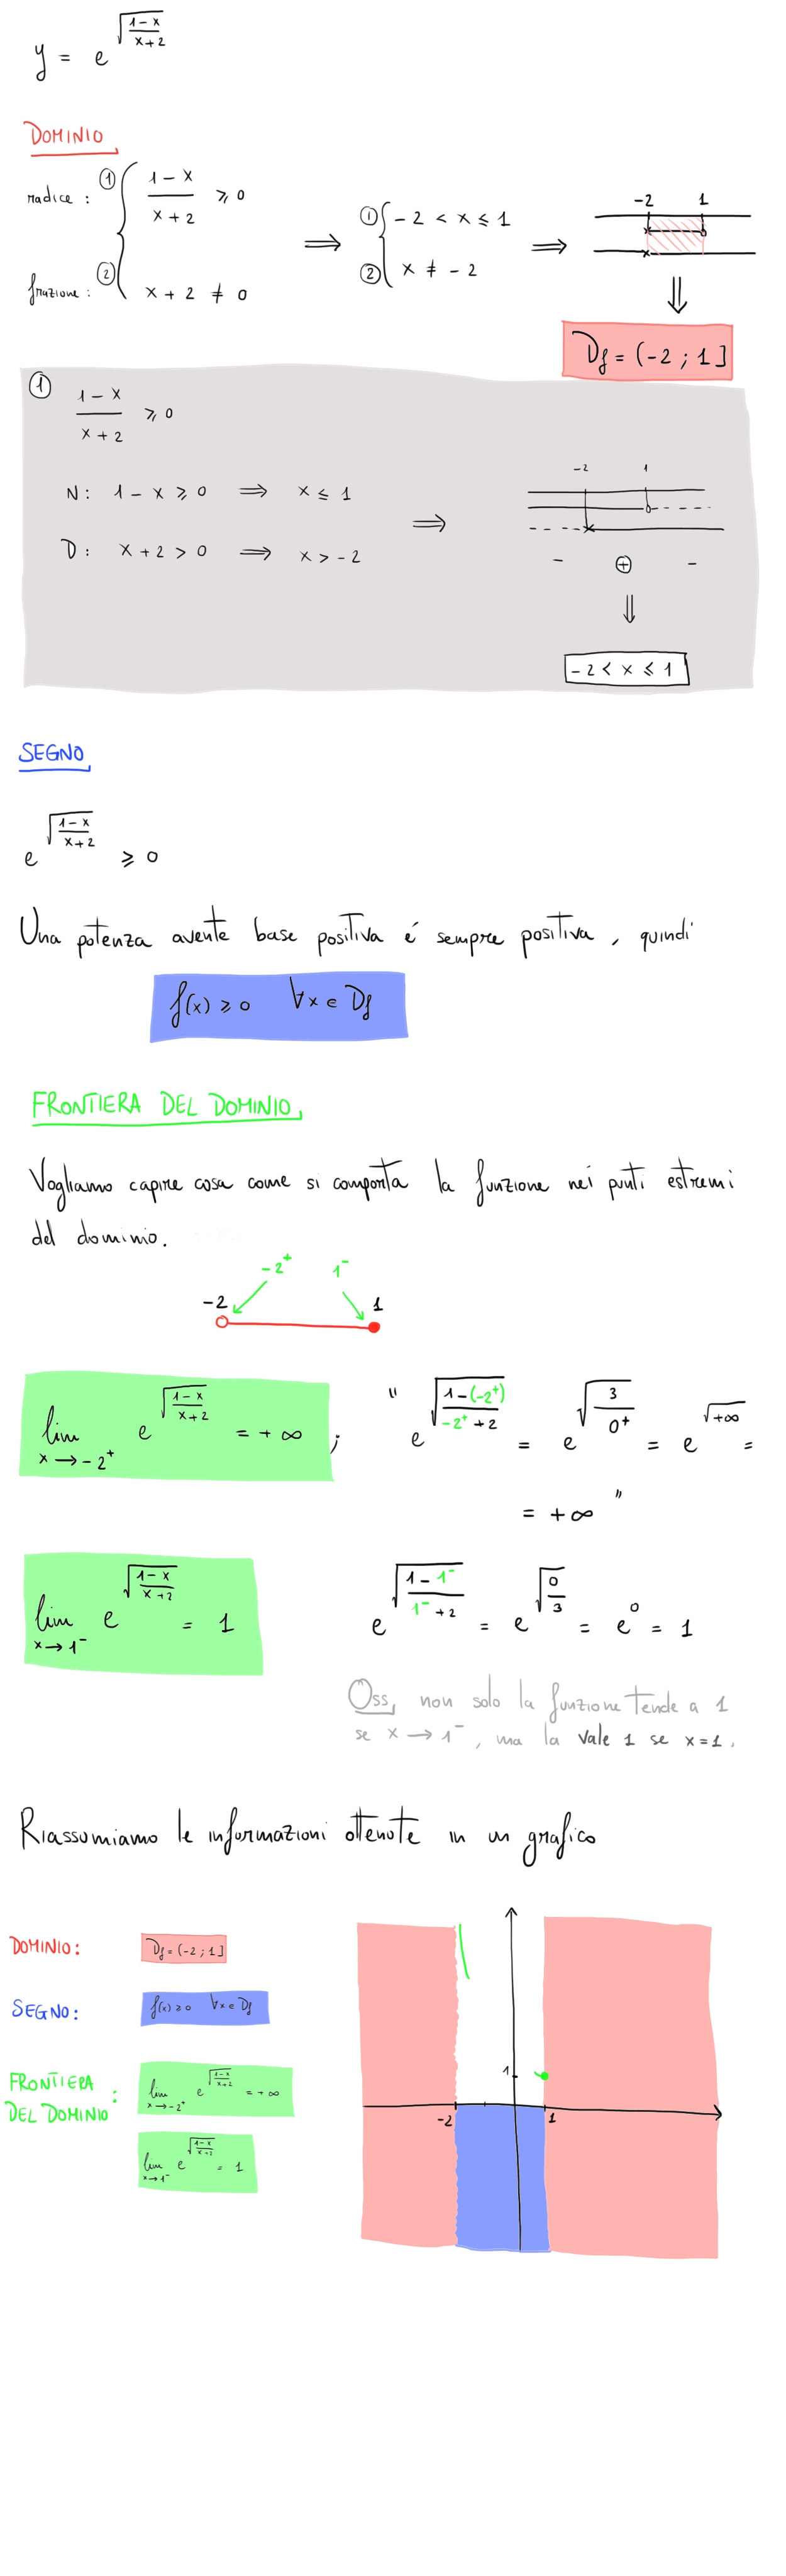 y = e^√((1-x)/(x+2))
DOMINIO
radice: ① (1-x)/(x+2) ⩾ 0
frazione: ② x+2 ≠ 0
⟹ ① -2 < x ≤ 1
② x ≠ -2
⟹ -2 1
⇓
Df = (-2 ; 1]
① (1-x)/(x+2) ⩾ 0
N: 1-x ⩾ 0 ⟹ x ≤ 1
D: x+2 > 0 ⟹ x > -2
⟹ -2 1
- ⊕ -
⇓
-2 < x ≤ 1
SEGNO
e^√((1-x)/(x+2)) ⩾ 0
Una potenza avente base positiva é sempre positiva, quindi
f(x) ⩾ 0 ∀x ∈ Df
FRONTIERA DEL DOMINIO
Vogliamo capire cosa come si comporta la funzione nei punti estremi
del dominio.
-2⁺ 1⁻
-2 1
lim x→-2⁺ e^√((1-x)/(x+2)) = +∞ ; " e^√((1-(-2⁺))/(-2⁺+2)) = e^√(3/0⁺) = e^√(+∞) =
= +∞ "
lim x→1⁻ e^√((1-x)/(x+2)) = 1 e^√((1-1⁻)/(1⁻+2)) = e^√(0/3) = e^0 = 1
Oss, non solo la funzione tende a 1
se x → 1⁻, ma la vale 1 se x=1.
Riassumiamo le informazioni ottenute in un grafico
DOMINIO: Df = (-2 ; 1]
SEGNO: f(x) ⩾ 0 ∀x ∈ Df
FRONTIERA
DEL DOMINIO :
lim x→-2⁺ e^√((1-x)/(x+2)) = +∞
lim x→1⁻ e^√((1-x)/(x+2)) = 1
1
-2 1